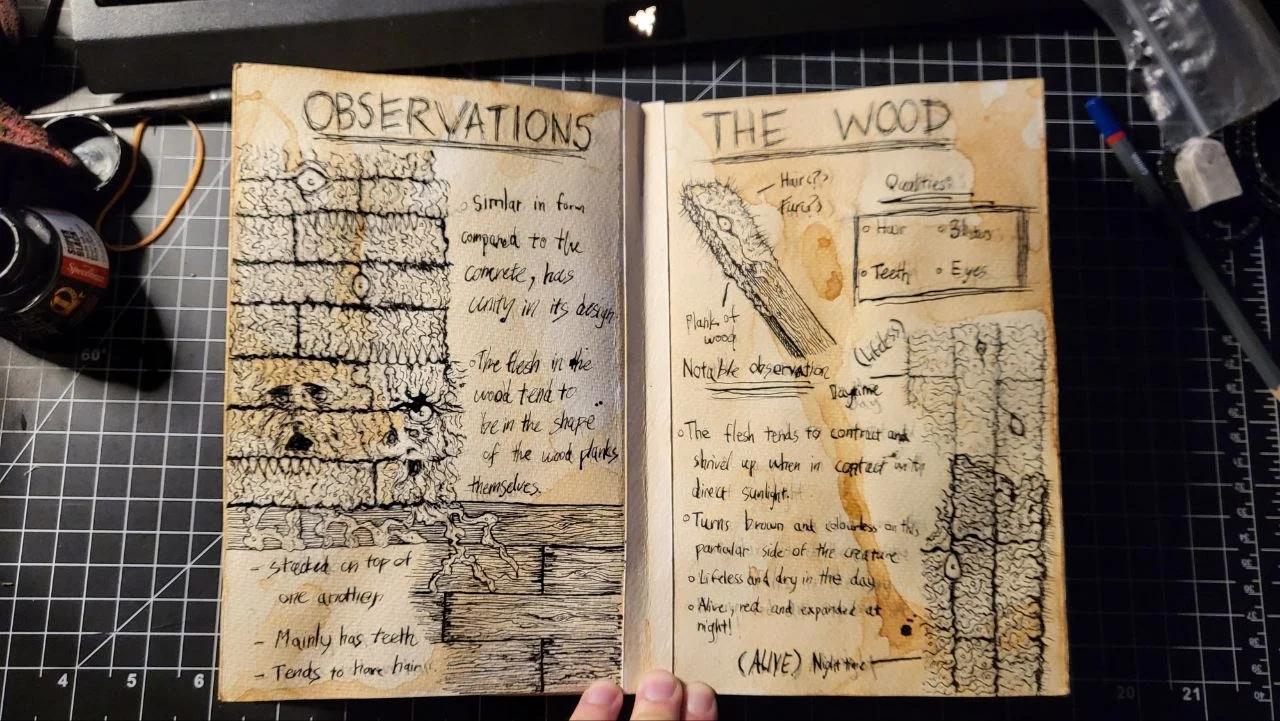 OBSERVATIONS
Similar in form
compared to the
concrete, has
unity in its design.
The flesh in the
wood tend to
be in the shape
of the wood planks
themselves.
- stacked on top of
one another
- Mainly has teeth
- Tends to have hair
THE WOOD
Hair(?)
Fur(?)
Plank of
wood
Qualities:
Hair
Teeth
Eyes
Notable observation
(Lifeless)
Daytime
The flesh tends to contract and
shrivel up when in contact with
direct sunlight.
Turns brown and colourless on this
particular side of the creature
Lifeless and dry in the day
Alive, red and expanded at
night!
(ALIVE) Night time
Speedball
60°
4 5 6
20 21